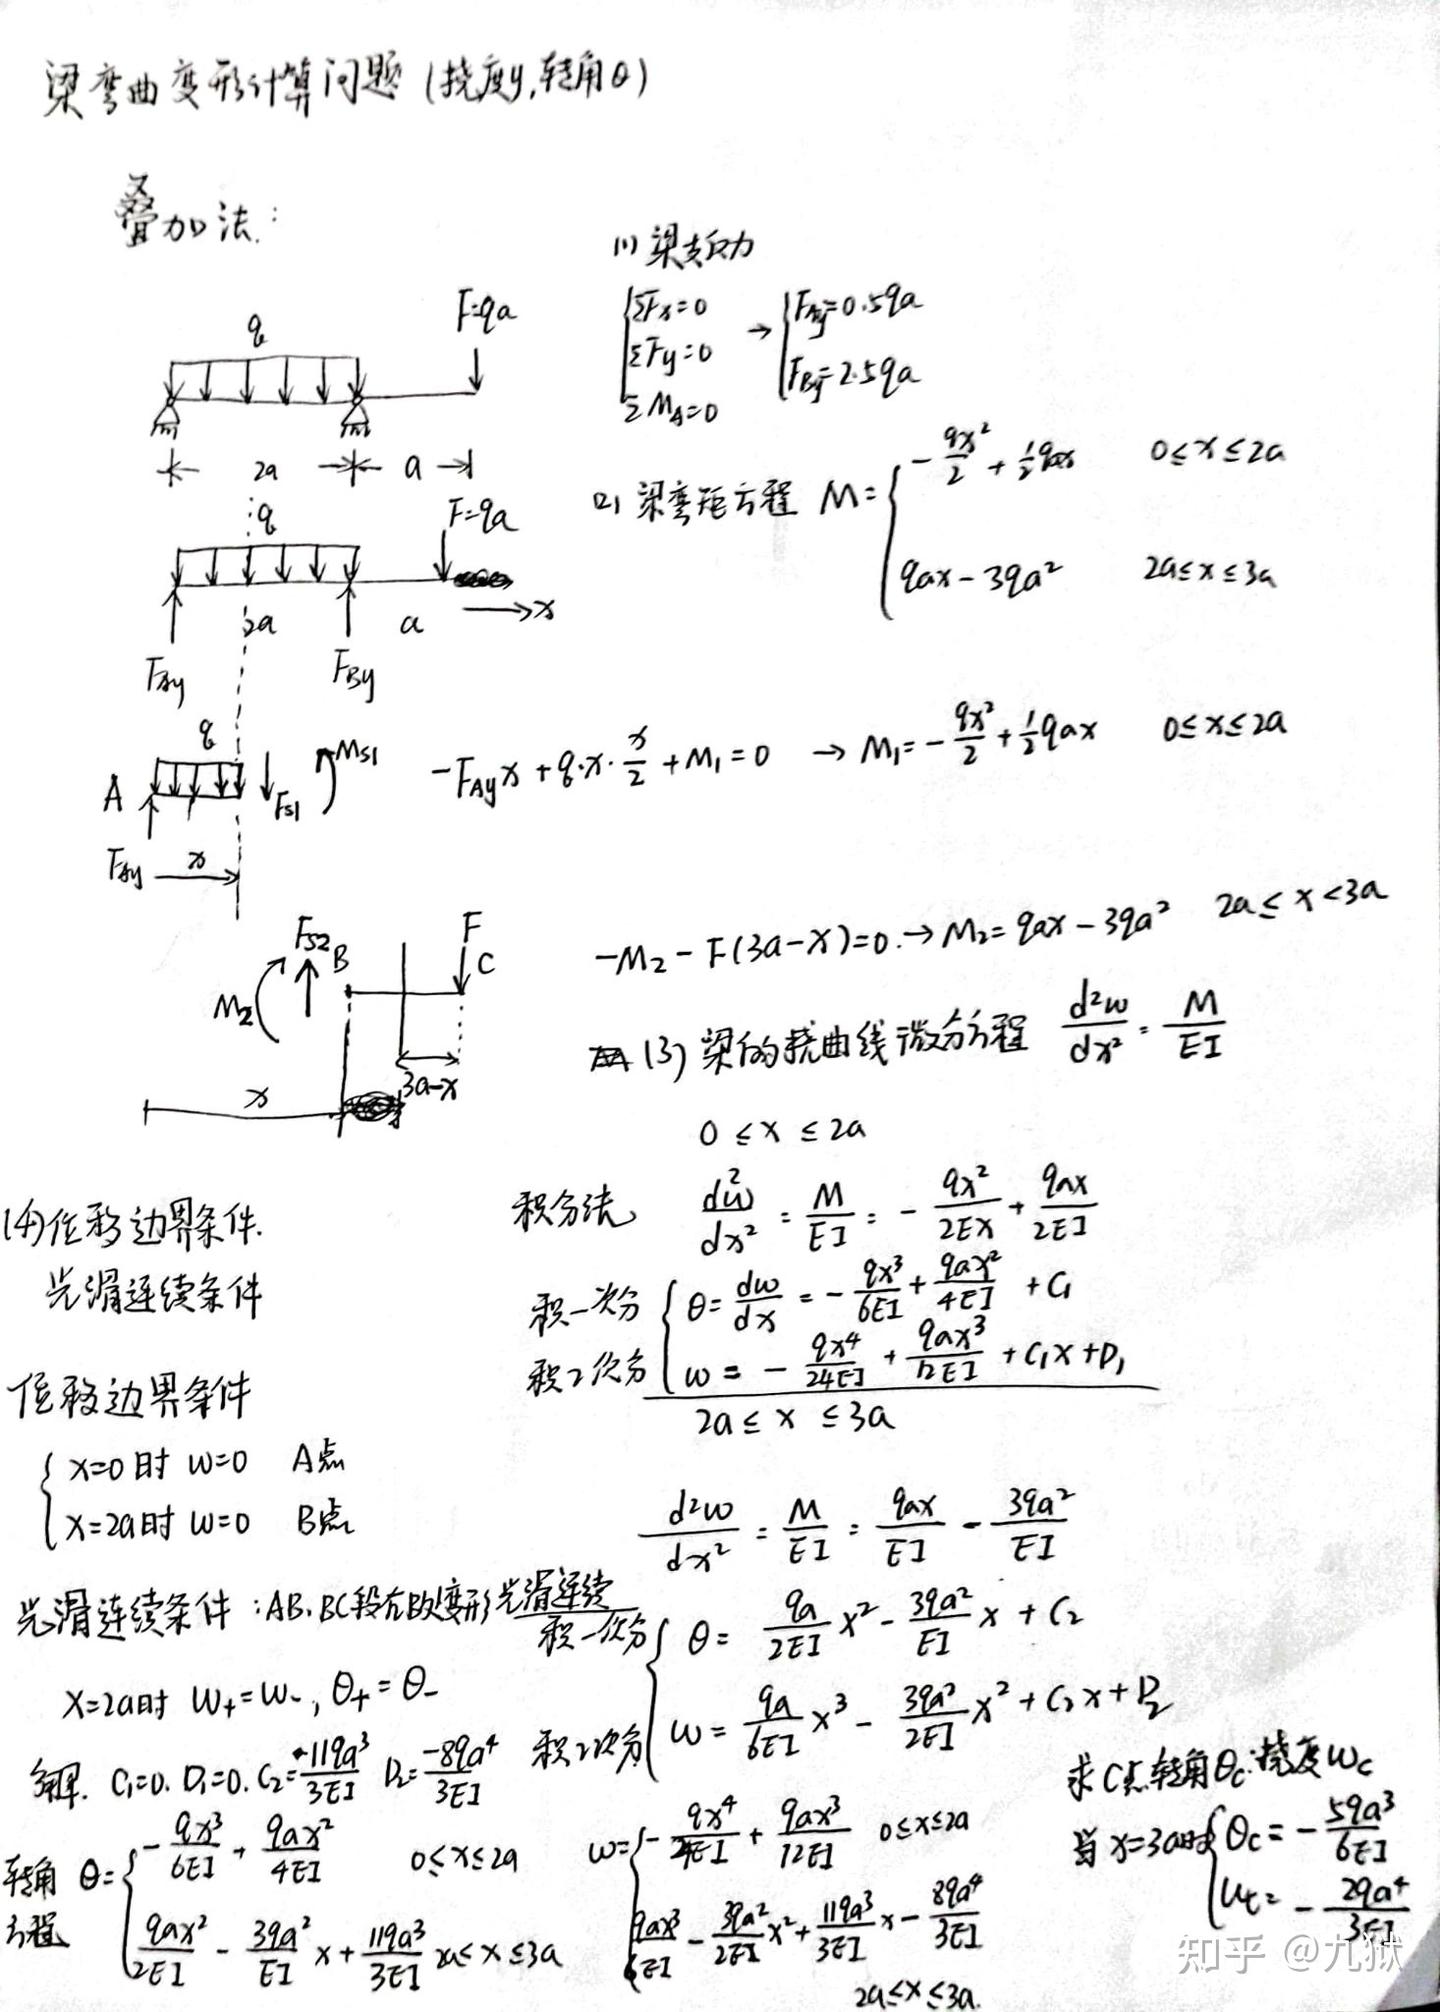 梁弯曲变形计算问题 (挠度y,转角θ)
叠加法:
q
F=qa
2a
a
q
F=qa
2a
a
x
FAy
FBy
q
A
FS1
MS1
FAy
x
FS2
B
F
C
M2
3a-x
x
(1) 梁支反力
ΣFx=0
ΣFy=0
ΣMA=0
→ FAy=0.5qa
FBy=2.5qa
(2) 梁弯距方程 M= { -qx²/2 + ½qax 0≤x≤2a
qax-3qa² 2a≤x≤3a
-FAyx+q·x·x/2+M1=0 → M1=-qx²/2+½qax 0≤x≤2a
-M2-F(3a-x)=0.→M2=qax-3qa² 2a≤x<3a
(3) 梁的挠曲线微分方程 d²w/dx² = M/EI
0≤x≤2a
积分法 d²w/dx² = M/EI = -qx²/2EX + qax/2EI
积一次分 θ=dw/dx = -qx³/6EI + qax²/4EI +C1
积2次分 w = -qx⁴/24EI + qax³/12EI +C1x+D1
2a≤x≤3a
d²w/dx² = M/EI = qax/EI - 3qa²/EI
积一次分 θ= qa/2EI x² - 3qa²/EI x + C2
积2次分 w = qa/6EI x³ - 3qa²/2EI x² + C2x+D2
(4)位移边界条件.
光滑连续条件
位移边界条件
x=0时 w=0 A点
x=2a时 w=0 B点
光滑连续条件:AB.BC段在B处变形光滑连续
x=2a时 w+=w-, θ+=θ-
解. C1=0. D1=0. C2=11qa³/3EI D2=-8qa⁴/3EI
转角方程 θ= { -qx³/6EI + qax²/4EI 0≤x≤2a
qax²/2EI - 3qa²/EI x + 11qa³/3EI 2a≤x≤3a
w= { -qx⁴/24EI + qax³/12EI 0≤x≤2a
qax³/6EI - 3qa²/2EI x² + 11qa³/3EI x - 8qa⁴/3EI
2a≤x≤3a.
求C点转角θc.挠度wc
当x=3a时 { θc = -5qa³/6EI
wc= -2qa⁴/3EI
知乎 @九狱